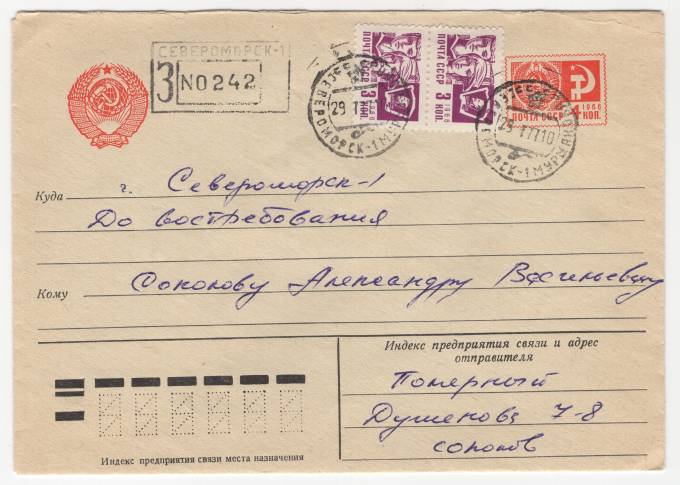 СЕВЕРОМОРСК-1
З №242
ПОЧТА СССР 3 КОП.
ПОЧТА СССР 3 КОП.
1966
ПОЧТА СССР 4 КОП.
СЕВЕРОМОРСК-1 МУРМ
МОРСК-1 МУРМ
Куда г. Североморск-1
До востребования
Кому Соколову Александру Васильевичу
Индекс предприятия связи и адрес
отправителя
Полярный
Душенова 7-8
соколов
Индекс предприятия связи места назначения